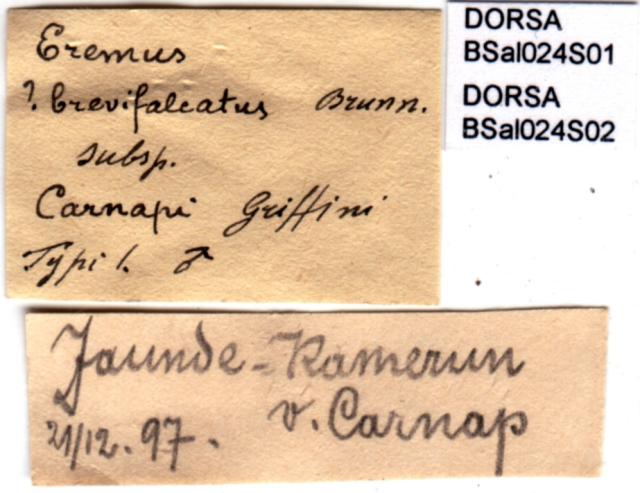 Eremus
? brevifalcatus Brunn.
subsp.
Carnapi Griffini
Typi 1. ♂
DORSA
BSal024S01
DORSA
BSal024S02
Jaunde-Kamerun
v. Carnap
21/12. 97.